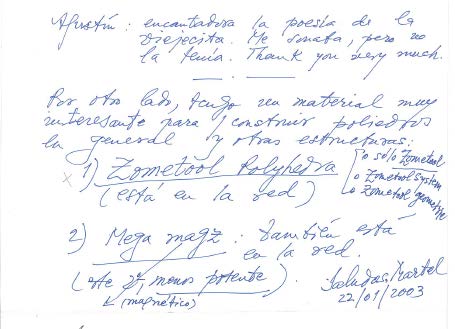 Agustín: encantadora la poesía de la
viejecita. Me sonaba, pero no
la tenía. Thank you very much.
Por otro lado, tengo un material muy
interesante para construir poliedros
en general y otras estructuras:
1) Zometool Polyhedra
(está en la red)
o sólo Zometool
o Zometool System
o Zometool geometría
2) Mega magz. También está
en la red.
(este 2º, menos potente).
(magnético)
Saludos,
22/01/2003